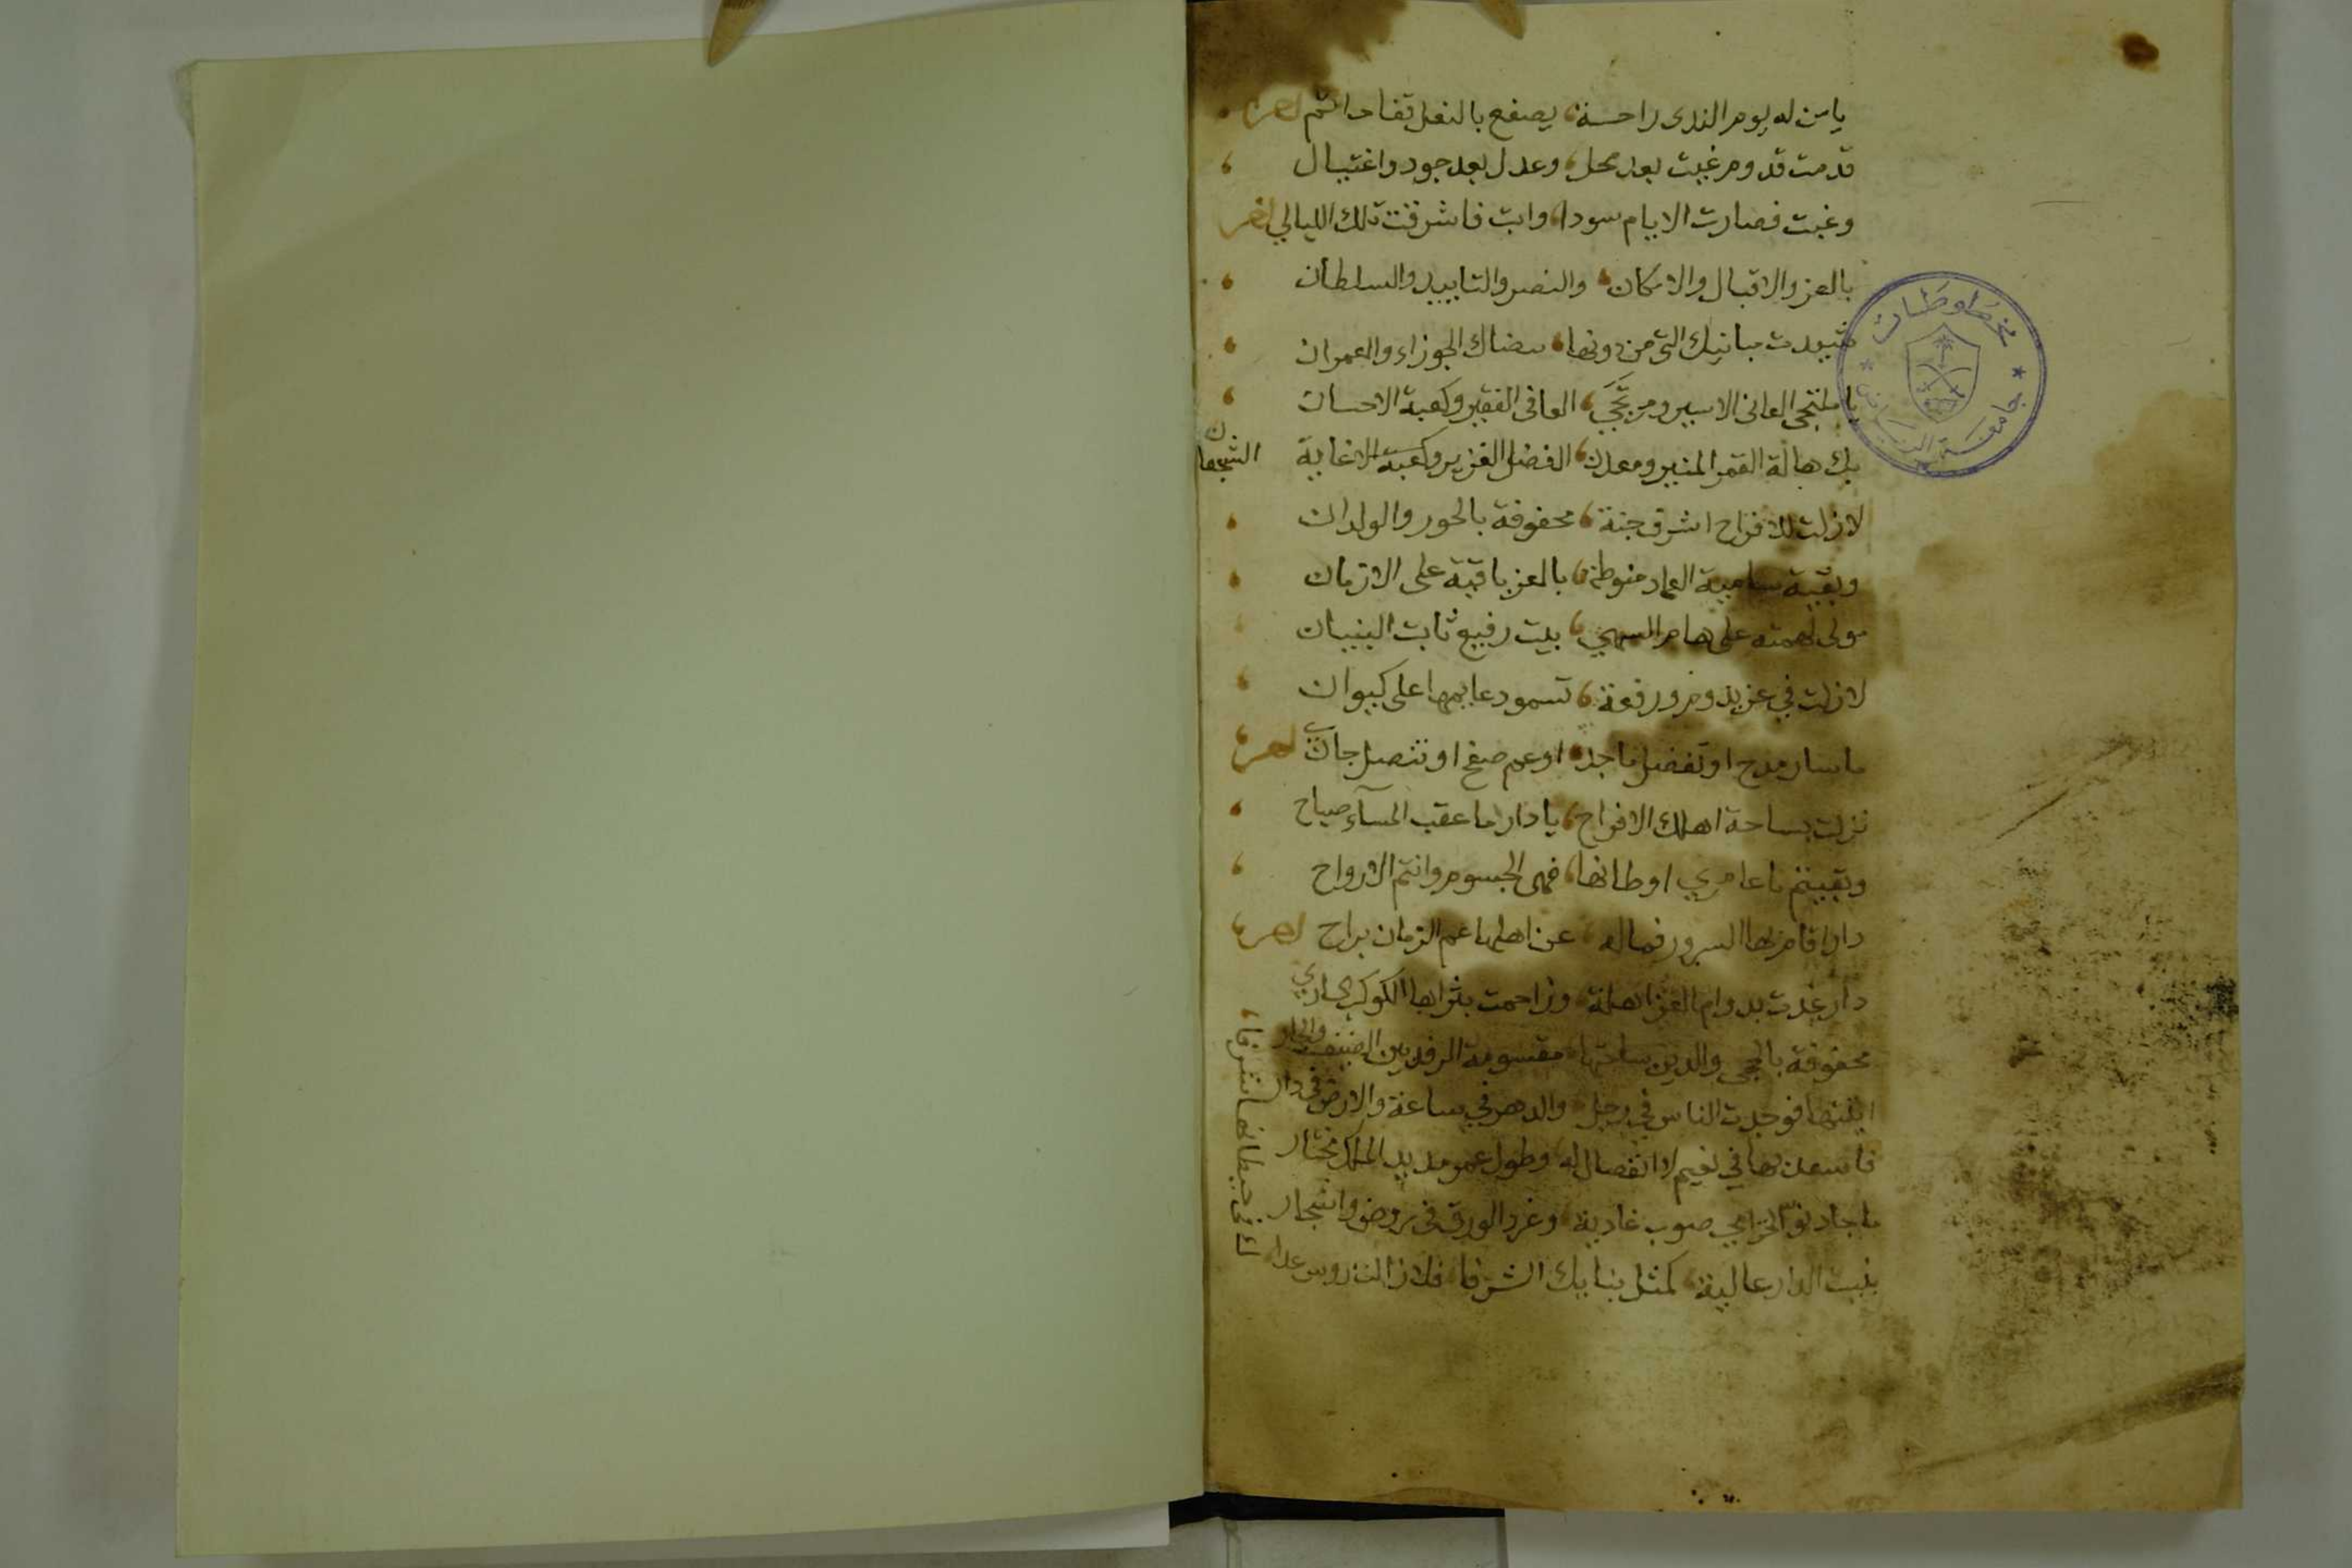 يا من له يوم الندى راحة، يصفع بالنعل قفا
قدمت قدوم غيث بعد محل، وعدل بعد جود واغتيال
وغبت فصارت الايام سودا، وابت فاشرقت تلك الليالي
بالعز والاقبال والامكان، والنصر والتاييد والسلطان
شيدت مبانيك التي من دونها، الجوزاء والعمران
يا ملتجى العانى الاسير ومرتجى، العافى الفقير وكعبة الاحسان
بك هالة القمر المنير ومعدن، الفضل الغزير وكعبة
لا زلت للافراح اشرف جنة، محفوفة بالحور والولدان
وبقية سامية العماد منوطة، بالعز باقية على الازمان
مولى لهمته على هام السهى، بيت رفيع ثابت البنيان
لا زلت في عز يدوم ورفعة، تسمو دعايمها على كيوان
ما سار مدح او تفضل ماجد، او عم صفح او تنصل جاني
نزلت بساحة اهلك الافراح، يا دار ما عقب المسآء صباح
وبقيتم يا عامري اوطانها، فهى الجسوم وانتم الارواح
دار اقام بها السرور فماله، عن اهلها عم الزمان براح
دار غدت بدوام العز اهلة، وزاحمت بثراها الكوكب الساري
محفوفة بالحجى والدين ساحتها، مقسومة الرفد بين الضيف والجار
اتيتها فوجدت الناس في رجل، والدهر في ساعة والارض في دار
فاسعد بها في نعيم لا انفصال له، وطول عمر مديد الملك مختار
ما جاد نوء صوب غادية، وغرد الورق في روض واشجار
بنيت الدار عالية، كمثل بنايك الشرفا، فلا زالت روس عدا
ك في حيطانها شرفا،
مخطوطات
جامعة الرياض